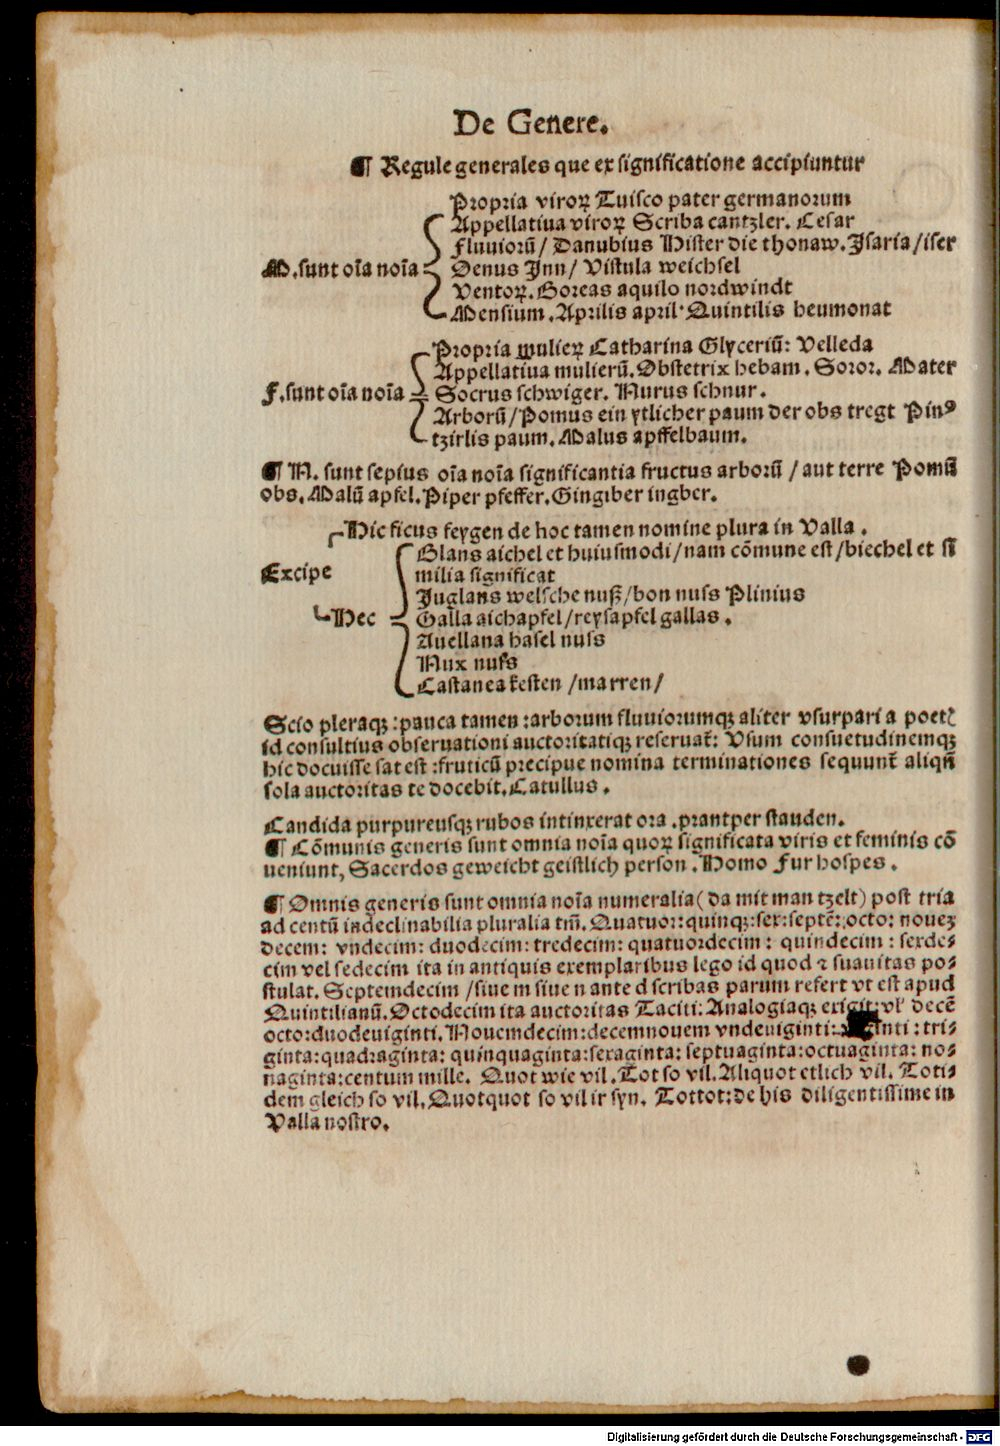 De Genere.
¶ Regule generales que ex significatione accipiuntur
Propria viroꝝ Tuisco pater germanorum
Appellatiua viroꝝ Scriba cantzler. Cesar
Fluuiorũ / Danubius Hister die thonaw. Isaria / iser
M. sunt oĩa noĩa
Oenus Inn / Vistula weichsel
Ventoꝝ. Boreas aquilo nordwindt
Mensium. Aprilis april. Quintilis heumonat
Propria mulieꝝ Catharina Glyceriũ: Velleda
Appellatiua mulierũ. Obstetrix hebam. Soror. Mater
F. sunt oĩa noĩa
Socrus schwiger. Nurus schnur.
Arborũ / Pomus ein ytlicher paum der obs tregt Pinꝰ
tzirlis paum. Malus apffelbaum.
¶ N. sunt sepius oĩa noĩa significantia fructus arborũ / aut terre Pomũ
obs. Malũ apfel. Piper pfeffer. Gingiber ingber.
Hic ficus feygen de hoc tamen nomine plura in Valla.
Glans aichel et huiusmodi / nam cõmune est / biechel et si
Excipe
milia significat
Juglans welsche nuß / bon nuss Plinius
Hec
Galla aichapfel / reysapfel gallas.
Auellana hasel nuss
Nux nuss
Castanea kesten / marren /
Scio pleraqꝫ : pauca tamen : arborum fluuiorumqꝫ aliter vsurpari a poetꝭ
id consultius obseruationi auctoritatiqꝫ reseruat̃: Vsum consuetudinemqꝫ
hic docuisse sat est : fruticũ precipue nomina terminationes sequunt̃ aliqñ
sola auctoritas te docebit. Catullus.
Candida purpureusqꝫ rubos intinxerat ora. prantper stauden.
¶ Cõmunis generis sunt omnia noĩa quoꝝ significata viris et feminis cõ
ueniunt, Sacerdos geweicht geistlich person. Homo Fur hospes.
¶ Omnis generis sunt omnia noĩa numeralia ( da mit man tzelt ) post tria
ad centũ indeclinabilia pluralia tm̃. Quatuor: quinqꝫ: sex: septẽ: octo: noueꝫ
decem: vndecim: duodecim: tredecim: quatuordecim: quindecim: sexde⸗
cim vel sedecim ita in antiquis exemplaribus lego id quod ⁊ suauitas po⸗
stulat. Septemdecim / siue m siue n ante d scribas parum refert vt est apud
Quintilianũ. Octodecim ita auctoritas Taciti: Analogiaqꝫ exigit: vl' decẽ
octo: duodeuiginti. Nouemdecim: decemnouem vndeuiginti: tri⸗
ginta: quadraginta: quinquaginta: sexaginta: septuaginta: octuaginta: no⸗
naginta: centum mille. Quot wie vil. Tot so vil. Aliquot etlich vil. Toti⸗
dem gleich so vil. Quotquot so vil ir syn. Tottot: de his diligentissime in
Valla nostro.
Digitalisierung gefördert durch die Deutsche Forschungsgemeinschaft - DFG